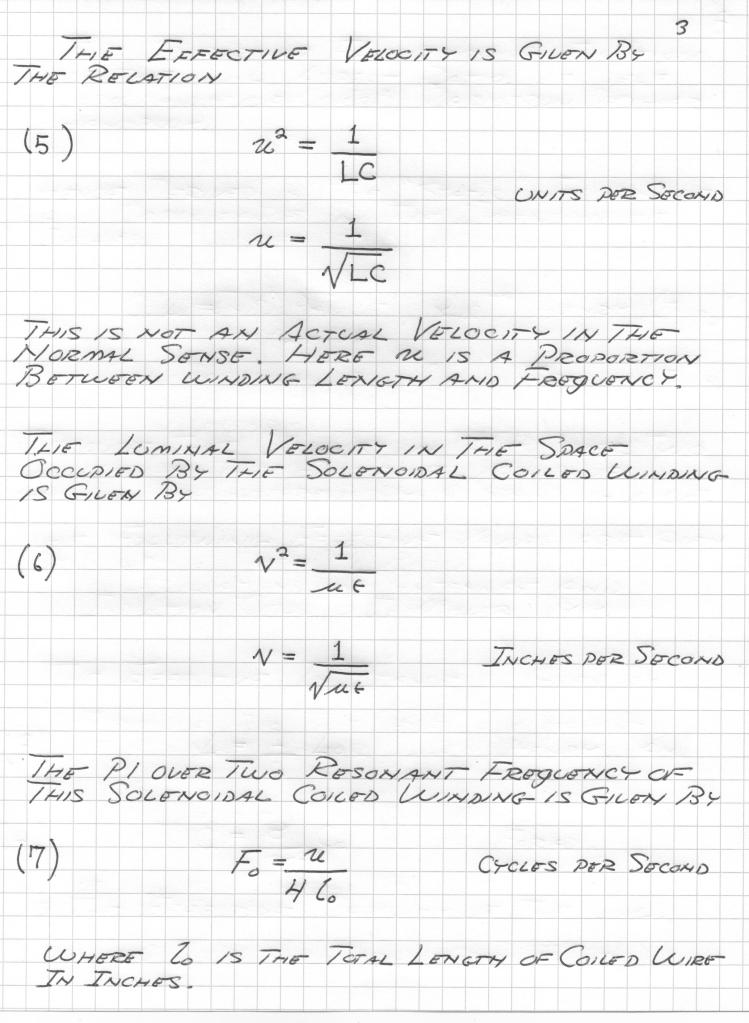 3
THE EFFECTIVE VELOCITY IS GIVEN BY
THE RELATION
(5) u² = 1/LC
UNITS PER SECOND
u = 1/√LC
THIS IS NOT AN ACTUAL VELOCITY IN THE
NORMAL SENSE. HERE u IS A PROPORTION
BETWEEN WINDING LENGTH AND FREQUENCY.
THE LUMINAL VELOCITY IN THE SPACE
OCCUPIED BY THE SOLENOIDAL COILED WINDING
IS GIVEN BY
(6) v² = 1/με
v = 1/√με INCHES PER SECOND
THE PI OVER TWO RESONANT FREQUENCY OF
THIS SOLENOIDAL COILED WINDING IS GIVEN BY
(7) F₀ = u/4l₀ CYCLES PER SECOND
WHERE l₀ IS THE TOTAL LENGTH OF COILED WIRE
IN INCHES.